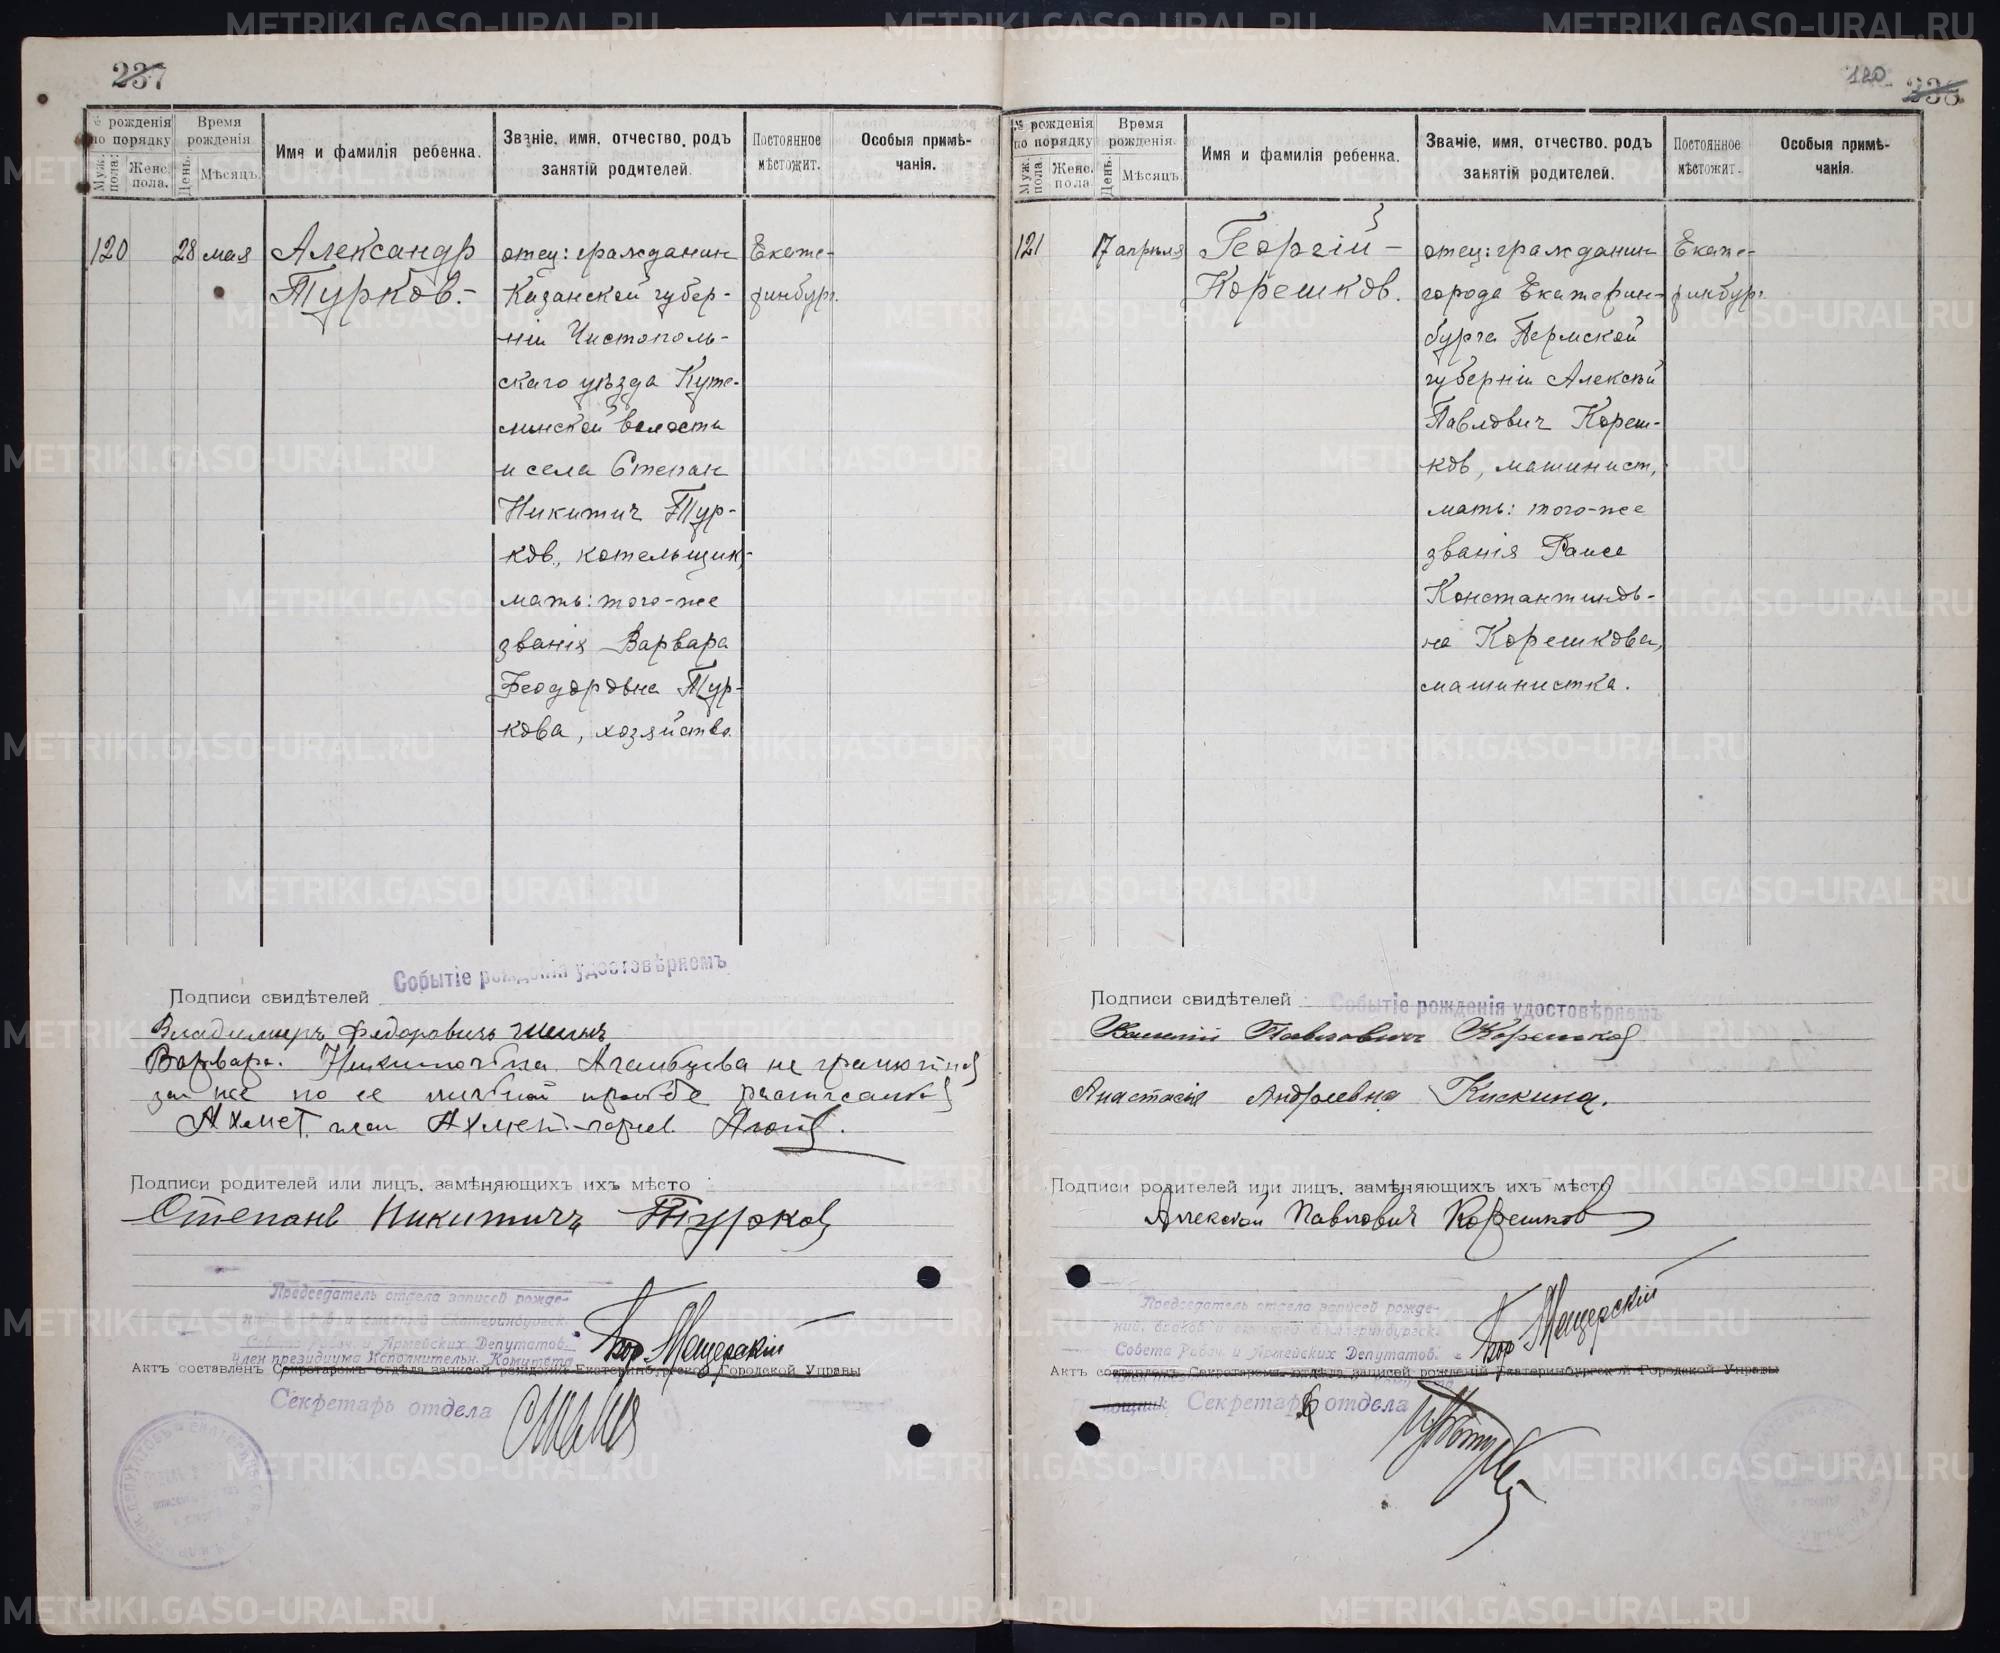 237
№ рожденія по порядку
Муж. пола.
Женс. пола.
Время рожденія
День.
Мѣсяцъ.
Имя и фамилія ребенка.
Званіе, имя, отчество, родъ
занятій родителей.
Постоянное
мѣстожит.
Особыя примѣ-
чанія.
120 28 мая
Александр
Турков.-
отец: гражданин
Казанской губер-
ніи Чистополь-
скаго уѣзда Куте-
минской волости
и села Степан
Никитич Тур-
ков, котельщик,
мать: того-же
званія Варвара
Феодоровна Тур-
кова, хозяйство.
Екате-
ринбург.
Событіе рожденія удостовѣряемъ
Подписи свидѣтелей
Владимиръ Федоровичъ
Варвара
за же по ее личной просьбе
Ахмет
Подписи родителей или лицъ, замѣняющихъ ихъ мѣсто
Степанъ Никитичъ Турков
Председатель отдела записей рожде-
Екатеринбургск.
Совета Рабоч. и Армейских Депутатов.
Член президиума Исполнительн. Комитета
Мещерскій
Актъ составленъ Секретаремъ отдѣла записей рожденій Екатеринбургской Городской Управы
Секретарь отдела
120
238
№ рожденія по порядку
Муж. пола
Женс. пола
Время рожденія.
День.
Мѣсяцъ.
Имя и фамилія ребенка.
Званіе, имя, отчество, родъ
занятій родителей.
Постоянное
мѣстожит.
Особыя примѣ-
чанія.
121 17 апрѣля
Георгій -
Корешков.
отец: гражданин
города Екатерин-
бурга Пермской
губерніи Алексѣй
Павлович Кореш-
ков, машинист,
мать: того-же
званія Раиса
Константинов-
на Корешкова,
машинистка.
Екате-
ринбург
Подписи свидѣтелей
Событіе рожденія удостовѣряемъ
Павлович Корешков
Анастасія Андреевна Кискина.
Подписи родителей или лицъ, замѣняющихъ ихъ мѣсто
Алексей Павлович Корешков
Председатель отдела записей рожде-
ний, браков и смертей Екатеринбургск.
Совета Рабоч. и Армейских Депутатов.
Мещерскій
Актъ составленъ Секретаремъ отдѣла записей рожденій Екатеринбургской Городской Управы
Помощник Секретаря отдела
METRIKI.GASO-URAL.RU